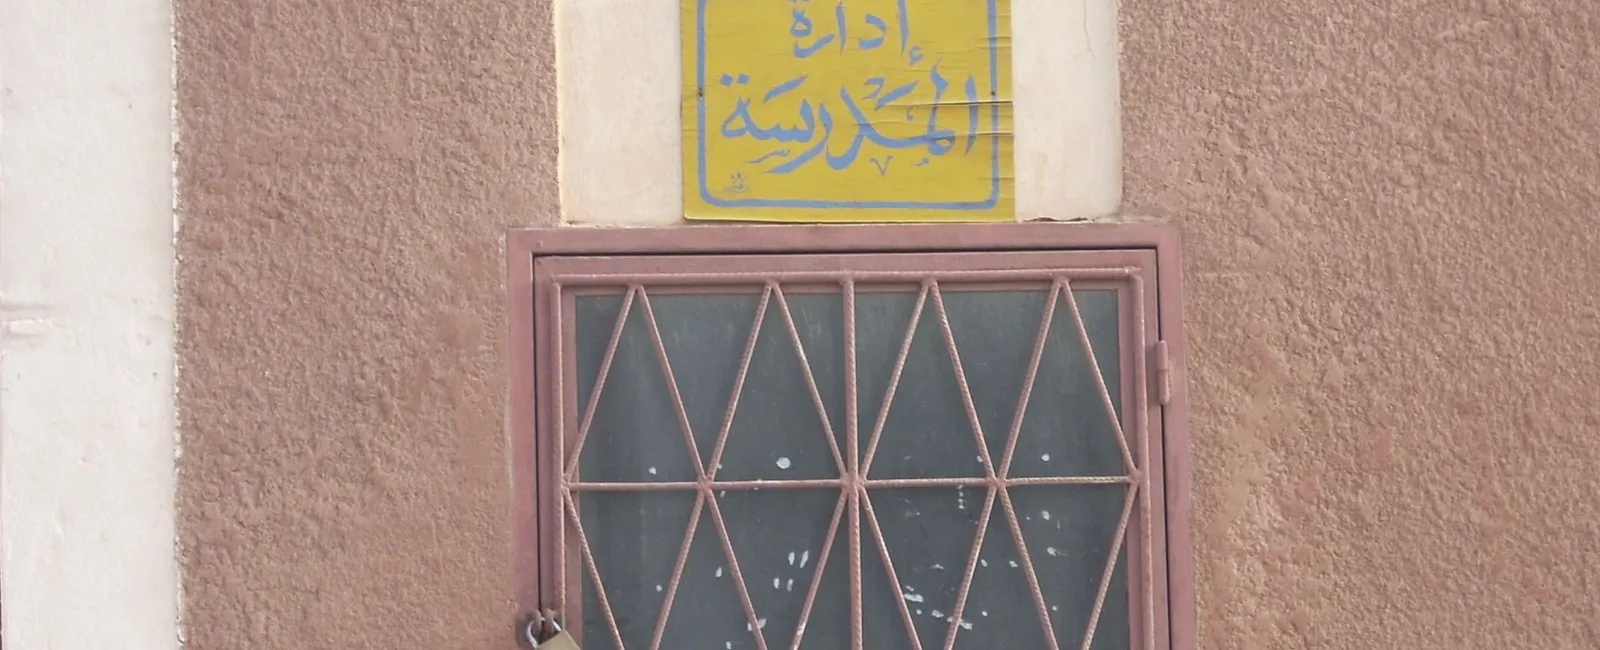 إدارة
المَدْرسَة